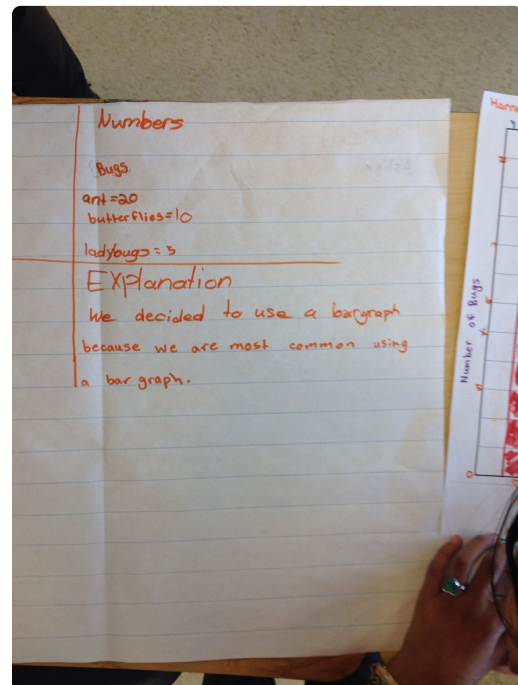 Numbers
Bugs
ant = 20
butterflies = 10
ladybugs = 5
Explanation
We decided to use a bargraph
because we are most common using
a bar graph.
Number of Bugs
0